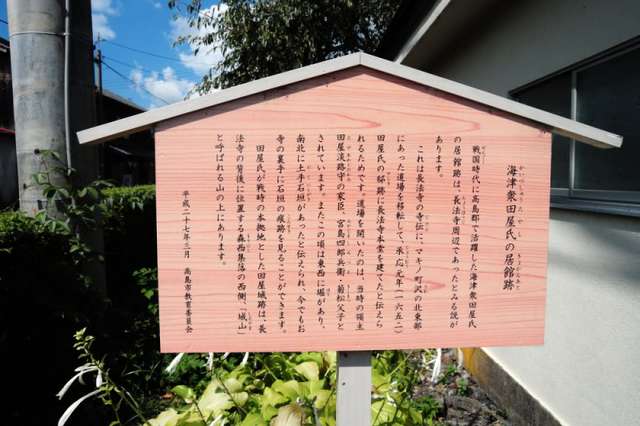 海津衆田屋氏の居館跡
戦国時代に高島郡で活躍した海津衆田屋氏
の居館跡は、長法寺周辺であったとみる説が
あります。
これは長法寺の寺伝に、マキノ町沢の北東部
にあった道場を移転して、承応元年(一六五二)
田屋氏の邸跡に長法寺本堂を建てたと伝えら
れるためです。道場を開いたのは、当時の領主
田屋淡路守の家臣、宮島四郎兵衛・若松父子と
されています。またこの頃は東西に堀があり、
南北に土手石垣があったと伝えられ、今でもお
寺の裏手に石垣の痕跡を見ることができます。
田屋氏が戦時の本拠地とした田屋城跡は、長
法寺の背後に位置する森西集落の西側、「城山」
と呼ばれる山の上にあります。
平成二十七年三月 高島市教育委員会